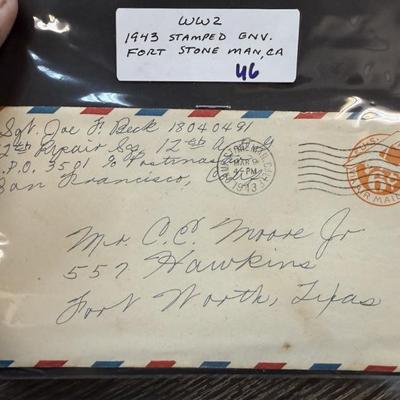 WW2
1943 STAMPED ENV.
FORT STONE MAN, CA
46
Sgt. Joe F. Beck 18040491
2nd Repair Sq. 12th A.
P.O. 3501 % Postmaster
San Francisco,
MAR 9
PM
1943
U.S.
AIR MAIL
Mr. C.C. Moore Jr
557 Hawkins
Fort Worth, Texas